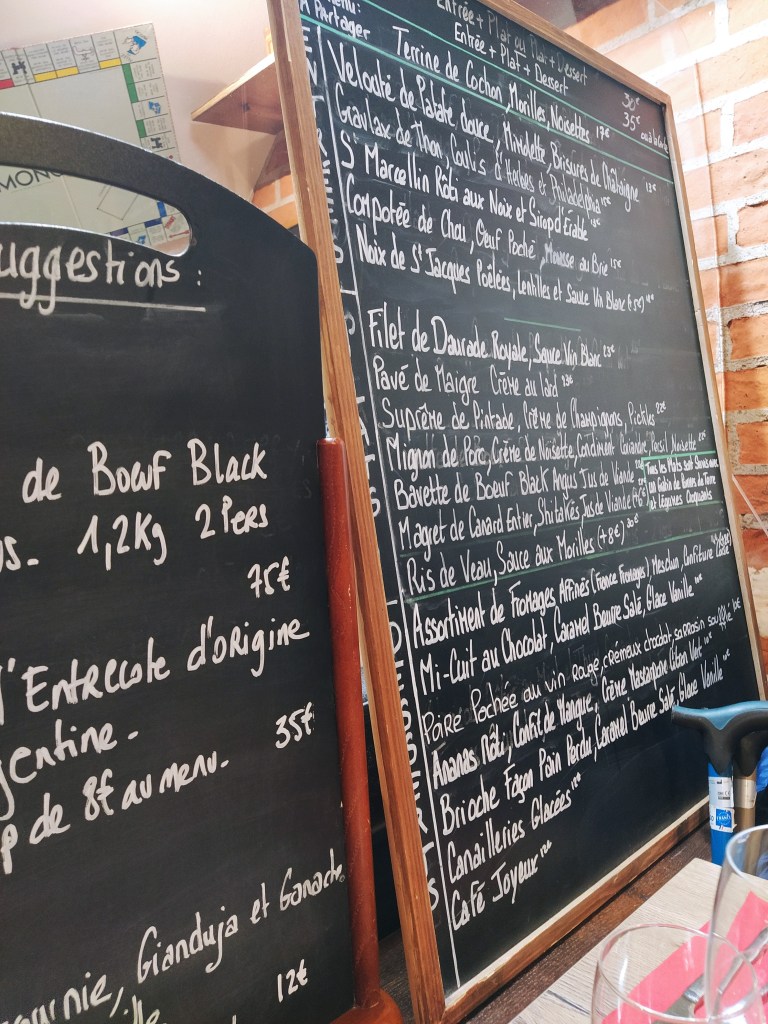 MONO
uggestions :
de Bœuf Black
us. 1,2Kg 2 Pers
75€
l'Entrecote d'origine
gentine.
35€
p de 8€ au menu.
ownie, Gianduja et Ganache
12€
Menu: Entrée + Plat ou Plat + Dessert 30€
A Partager Entrée + Plat + Dessert 35€
Terrine de Cochon, Morilles, Noisettes 17€
Velouté de Patate douce, Mimolette, Brisures de Châtaigne 12€
Gravlax de Thon, Coulis d'Herbes et Philadelphia 15€
St Marcellin Rôti aux Noix et Sirop d'Érable
Compotée de Chou, Œuf Poché, Mousse au Brie 15€
Noix de St Jacques Poêlées, Lentilles et Sauce Vin Blanc (+5€)
Filet de Daurade Royale, Sauce Vin Blanc 23€
Pavé de Maigre Crème au lard 23€
Suprême de Pintade, Crème de Champignons, Pickles 22€
Mignon de Porc, Crème de Noisette, Condiment Coriandre Persil Noisette
Bavette de Boeuf Black Angus Jus de Viande
Magret de Canard Entier, Shiitakés, Jus de Viande
Tous les Plats sont Servis avec
un Gratin de Pommes de Terre
et Légumes Croquants
Ris de Veau, Sauce aux Morilles (+8€) 30€
Assortiment de Fromages Affinés (France Fromages) Mesclun, Confiture
Mi-Cuit au Chocolat, Caramel Beurre Salé, Glace Vanille
Poire Pochée au vin rouge, crémeux chocolat sarrasin soufflé
Ananas Rôti, Confit de Mangue, Crème Mascarpone Citron Vert
Brioche Façon Pain Perdu, Caramel Beurre Salé, Glace Vanille
Canailleries Glacées
Café Joyeux